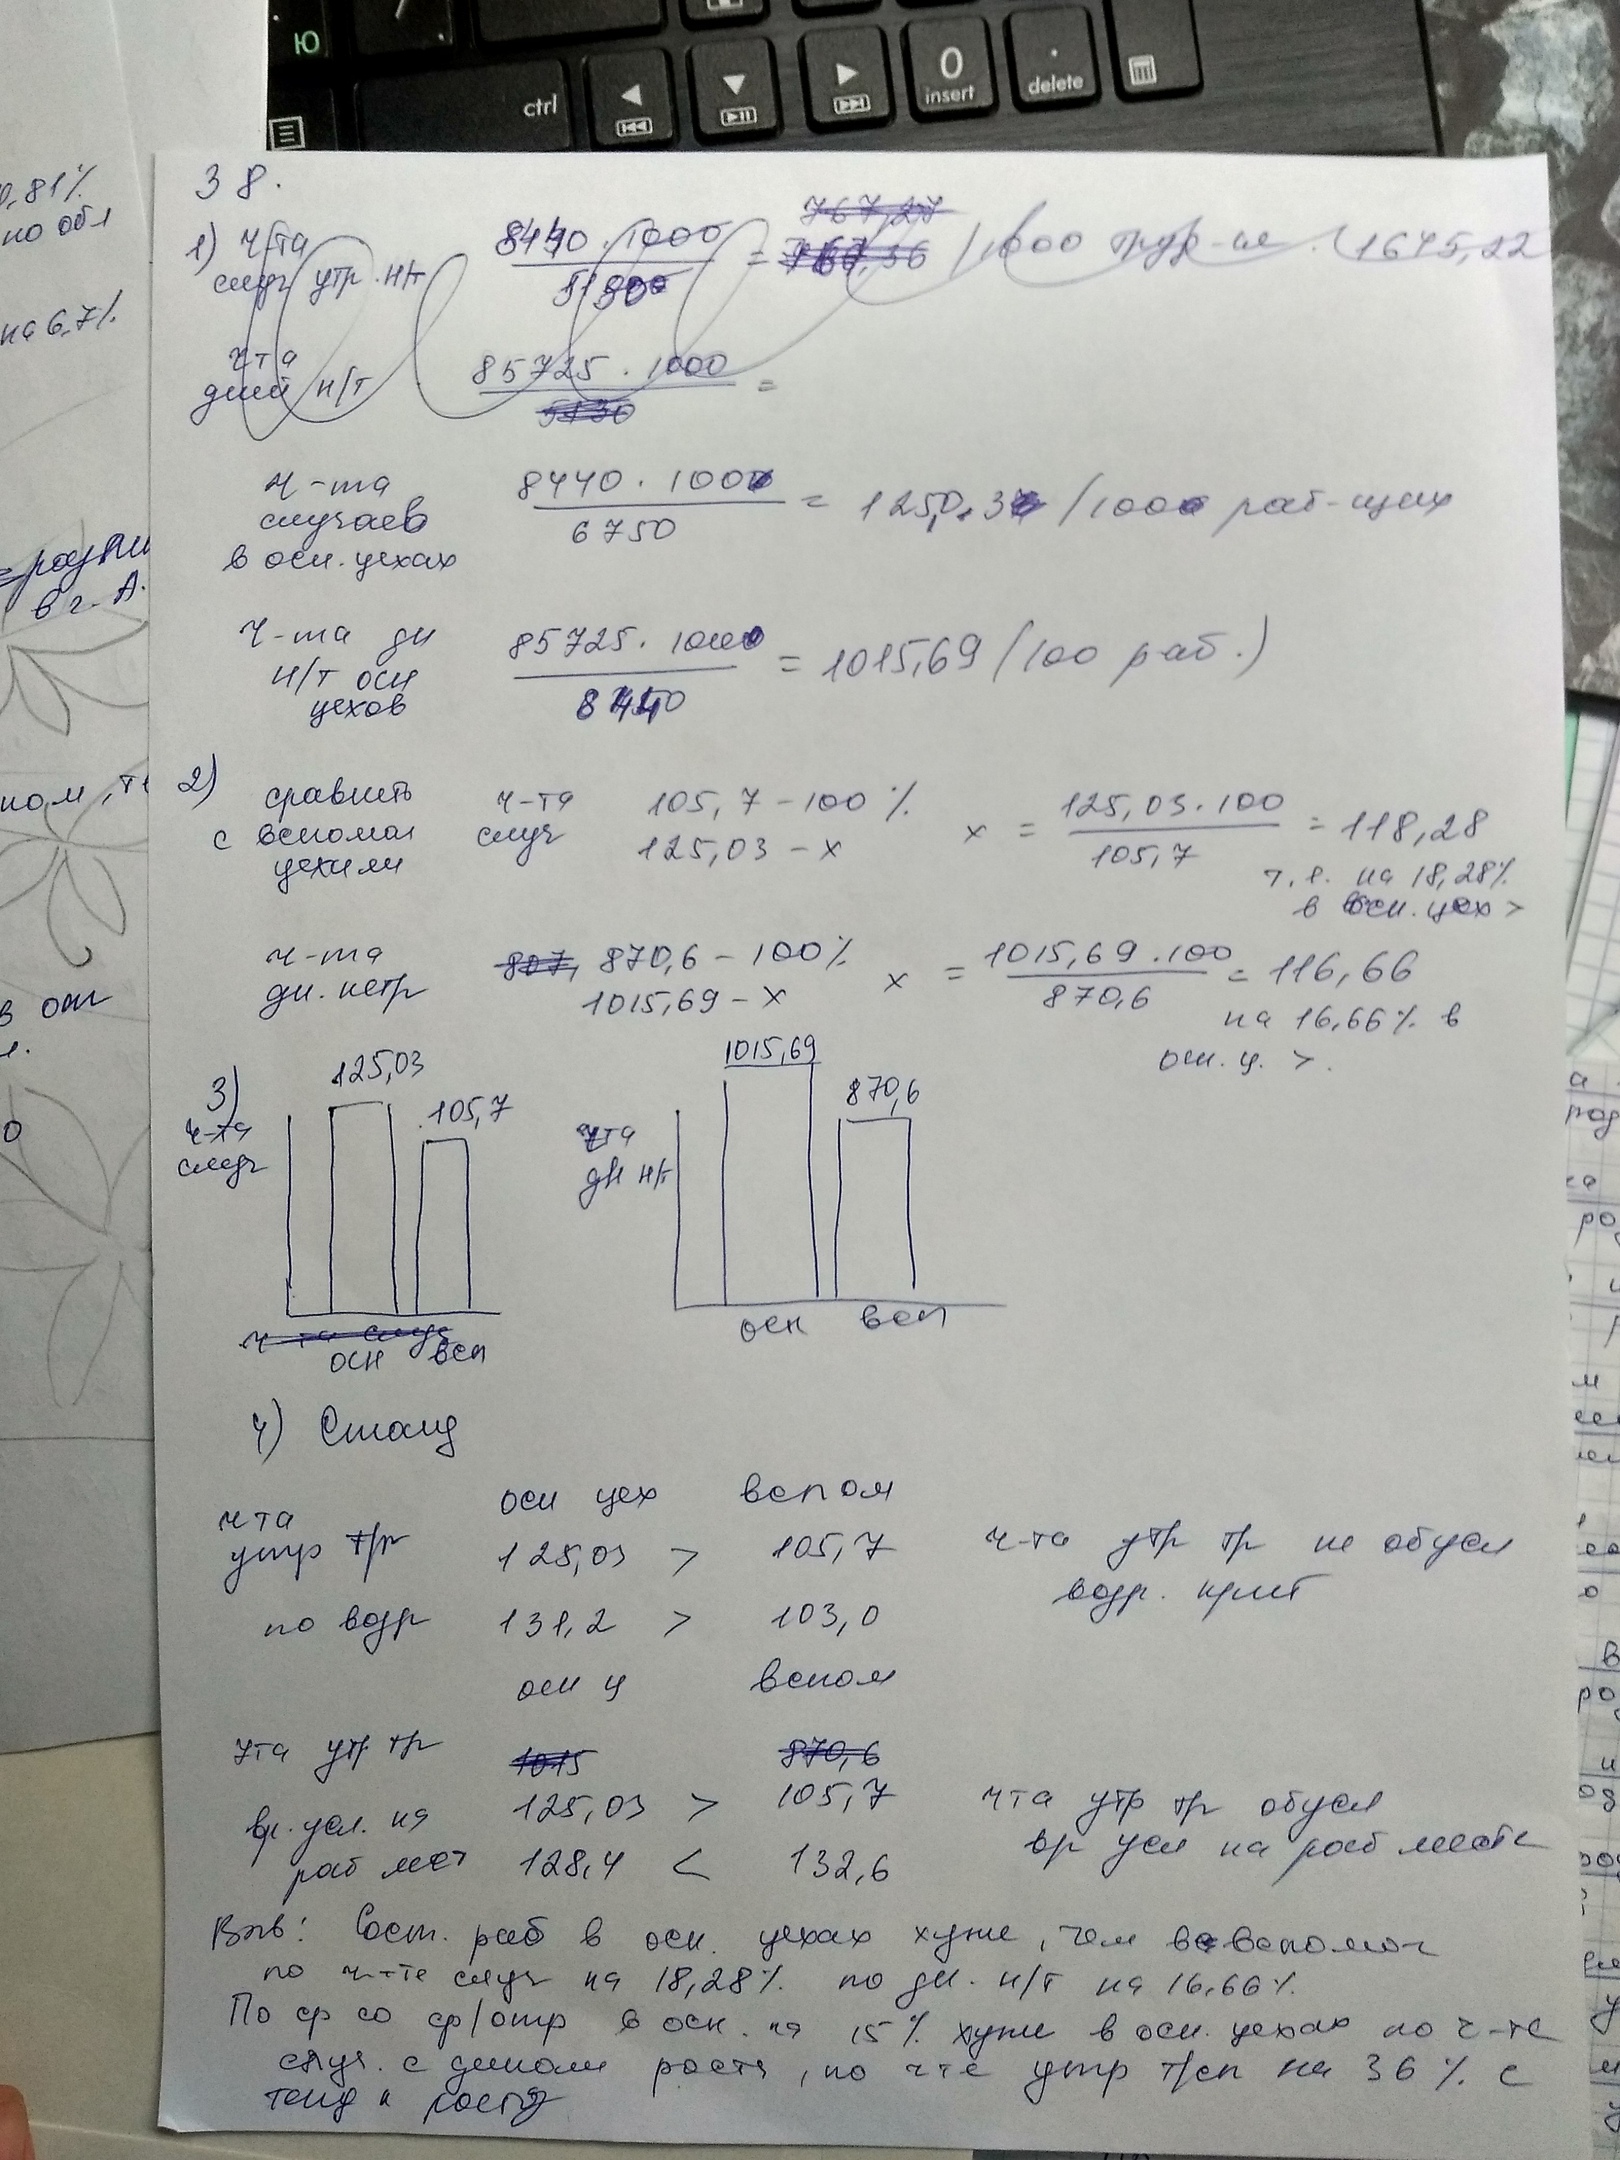 Ю
ctrl
0
insert
.
delete
0,81%
по обл
на 6,7%
в г. А.
38.
1) ч/та
случ утр. н/т
8440 · 1000
=
767,27
/1000 (1645,22
ч та
дней н/т
85725 · 1000
=
5130
ч-та
случаев
в осн. цехах
8440 · 1000
6750
= 1250,3 /1000 раб-щих
ч-та дн
н/т осн
цехов
85725 · 1000
= 1015,69 (100 раб.)
2) сравнить
с вспомог
цехами
ч-та
случ
105,7 – 100 %
125,03 – x
x = 125,03 · 100
105,7
= 118,28
т. е. на 18,28%
в осн. цех >
ч-та
дн. нетр
807, 870,6 – 100%
1015,69 – x
x = 1015,69 · 100
870,6
= 116,66
на 16,66% в
осн. ц. >.
3)
ч-та
случ
125,03
105,7
ч-та случ
осн всп
чта
дн н/т
1015,69
870,6
осн всп
4) Станд
осн цех вспом
чта
утр т/р
125,03 > 105,7
ч-та утр тр не обусл
возр. крит
по возр 131,2 > 103,0
осн ц вспом
чта утр тр 1015 870,6
125,03 > 105,7
чта утр тр обусл
вр усл на раб месте
вр. усл. на
раб мест 128,4 < 132,6
Выв: Сост. раб в осн. цехах хуже, чем в вспомог
по ч-те случ на 18,28% по дн. н/т на 16,66%.
По ср со ср/отр в осн. на 15% хуже в осн. цехах по ч-те
случ. с роста, по чте утр т/сп на 36% с
тенд к росту